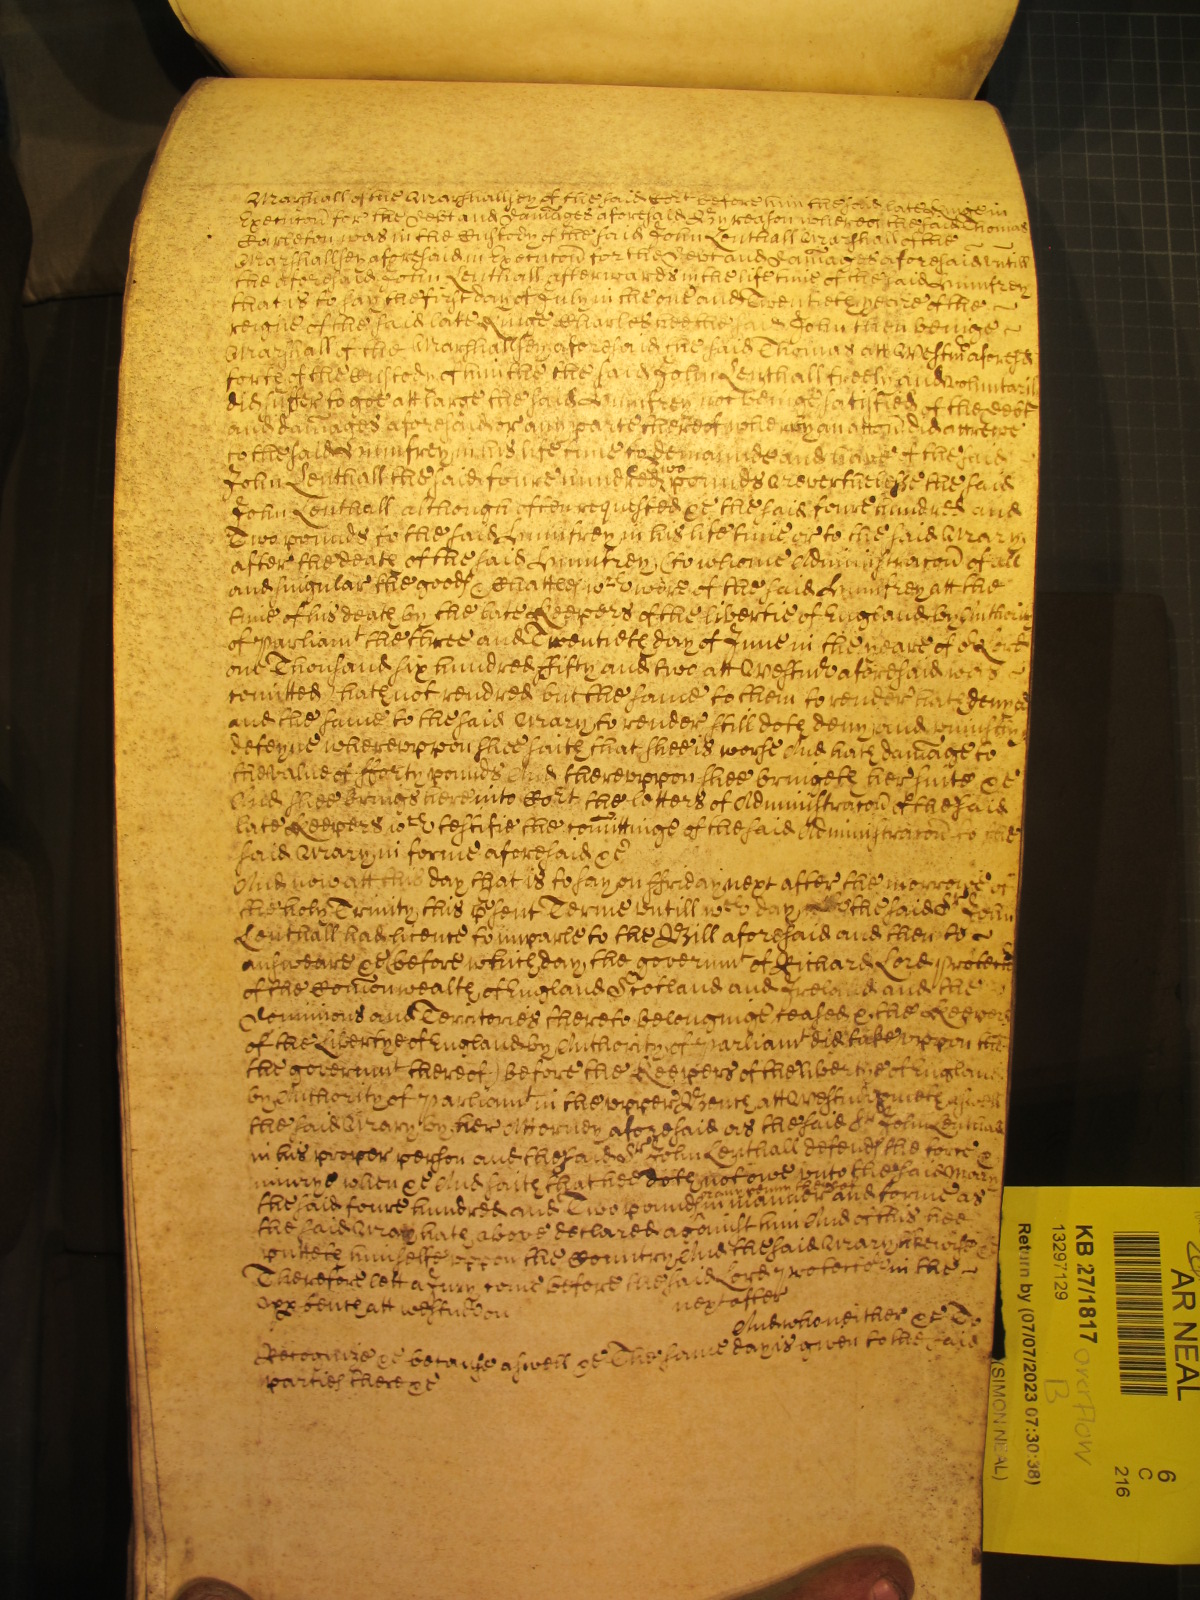 Marshall of the Marshallsey of the said Cort before him the said late Kinge in
Execucon for the Debt and damages aforesaid By reason whereof the said Thomas
Carleton was in the Custody of the said John Lenthall Marshall of the
Marshallsey aforesaid in Execucon for the Debt and damages aforesaid untill
the aforesaid John Lenthall afterwards in the life time of the said Humfrey
that is to say the first day of July in the one and Twentieth yeare of the
reigne of the said late Kinge Charles hee the said John then beinge
Marshall of the Marshallsey aforesaid the said Thomas att Westmr aforesd
forth of the Custody of him the said John Lenthall freely and voluntarily
did suffer to goe att large the said Humfrey not beinge satisfied of the debt
and damages aforesaid or any parte thereof whereby an accon did accrewe
to the said Humfrey in his life time to demaunde and have of the said
John Lenthall the said foure hundred & two pounds Neverthelesse the said
John Lenthall although often requested &c the said foure hundred and
Two pounds to the said Humfrey in his life time or to the said Mary
after the death of the said Humfrey (to whome Administracon of all
and singular the goods & Chattles wch were of the said Humfrey att the
time of his death by the late Keepers of the libertie of England by Authority
of Parliamt the three and Twentieth day of June in the yeare of or Lord
one Thousand six hundred Fifty and two att Westmr aforesaid was
comitted) hath not rendred but the same to them to render hath denyed
and the same to the said Mary to render still doth deny and uniustly
deteyne whereuppon shee saith that shee is worse And hath damage to
the value of fforty pounds And thereuppon shee bringeth her suite &c
And shee brings here into Cort the letters of Administracon of the said
late Keepers wch testifie the comittinge of the said Administracon to the
said Mary in forme aforesaid &c
And now att this day that is to say on ffriday next after the morrowe of
the holy Trinity this psent Terme untill wch day the said Sr John
Lenthall had licence to imparle to the Bill aforesaid and then to
answeare &c (before which day the governmt of Richard Lord Protector
of the Comonwealth of England Scotland and Ireland and the
Dominions and Territories thereto belonginge ceased & the Keepers
of the Libertye of England by Authority of Parliamt did take uppon them
the governmt thereof) before the Keepers of the libertye of England
by Authority of Parliamt in the upper Bench att Westmr cometh aswell
the said Mary by her Attorney aforesaid as the said Sr John Lenthall
in his proper person and the said Sr John Lenthall defends the force &
iniurye when &c And saith that hee doth not owe unto the said Mary
the said foure hundred and Two pounds or any penny thereof in manner and forme as
the said Mary hath above declared against him And of this hee
putteth himselfe uppon the Country And the said Mary likewise &c
Therefore lett a Jury come before the said Lord Protector in the
upp bench att Westmr on next after
And who neither &c To
Recognize &c because aswell &c The same day is given to the said
parties there &c
AR NEAL
6
C
216
KB 27/1817 overflow
B
13297129
Return by (07/07/2023 07:30:38)
(SIMON NEAL)